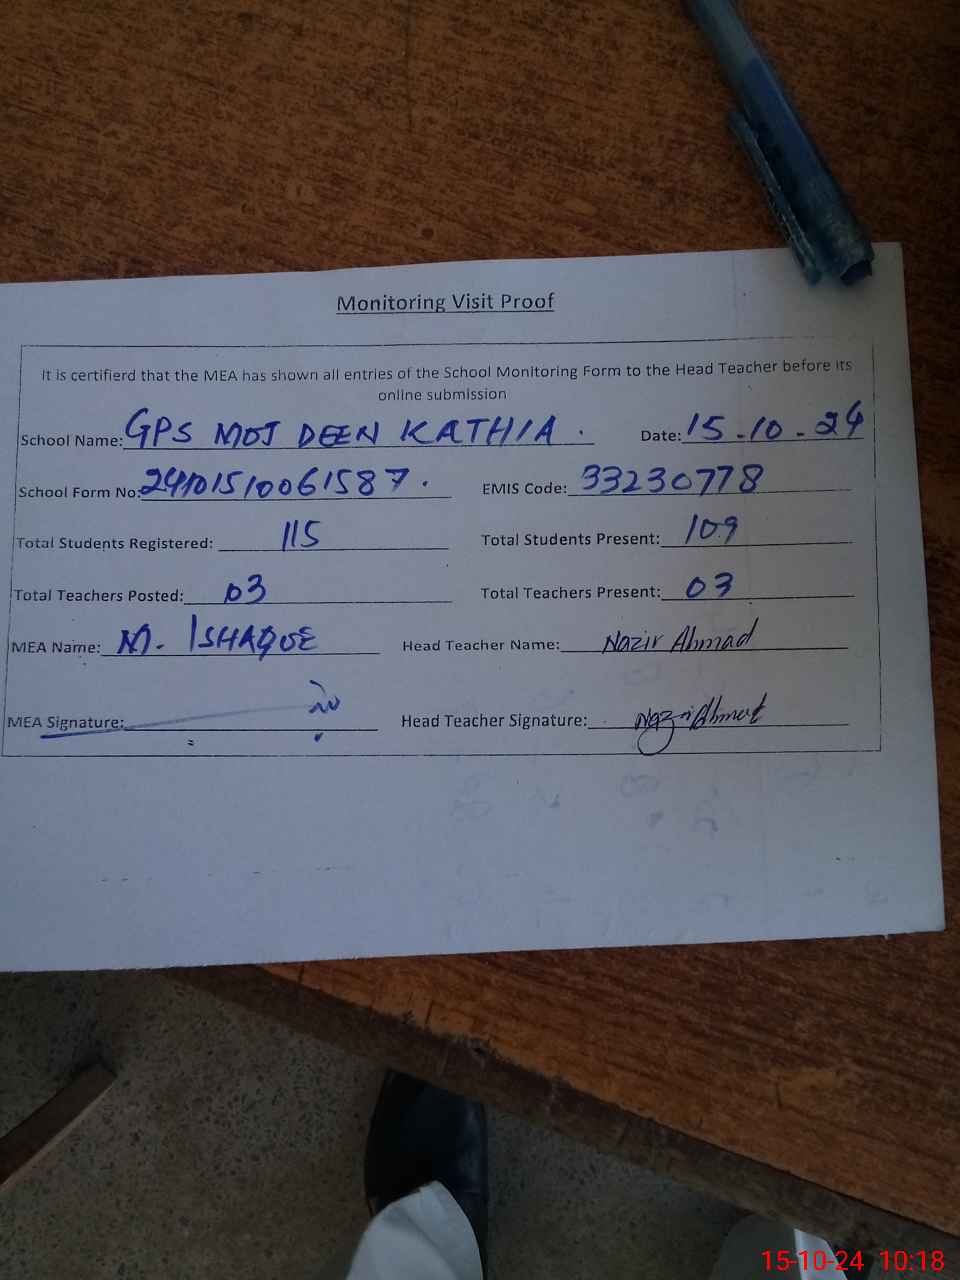 Monitoring Visit Proof
It is certifierd that the MEA has shown all entries of the School Monitoring Form to the Head Teacher before its
online submission
School Name: GPS MOJ DEEN KATHIA . Date: 15-10-24
School Form No: 24101510061587. EMIS Code: 33230778
Total Students Registered: 115 Total Students Present: 109
Total Teachers Posted: 03 Total Teachers Present: 03
MEA Name: M. ISHAQUE Head Teacher Name: Nazir Ahmad
MEA Signature: Head Teacher Signature: Nazir Ahmad
15-10-24 10:18